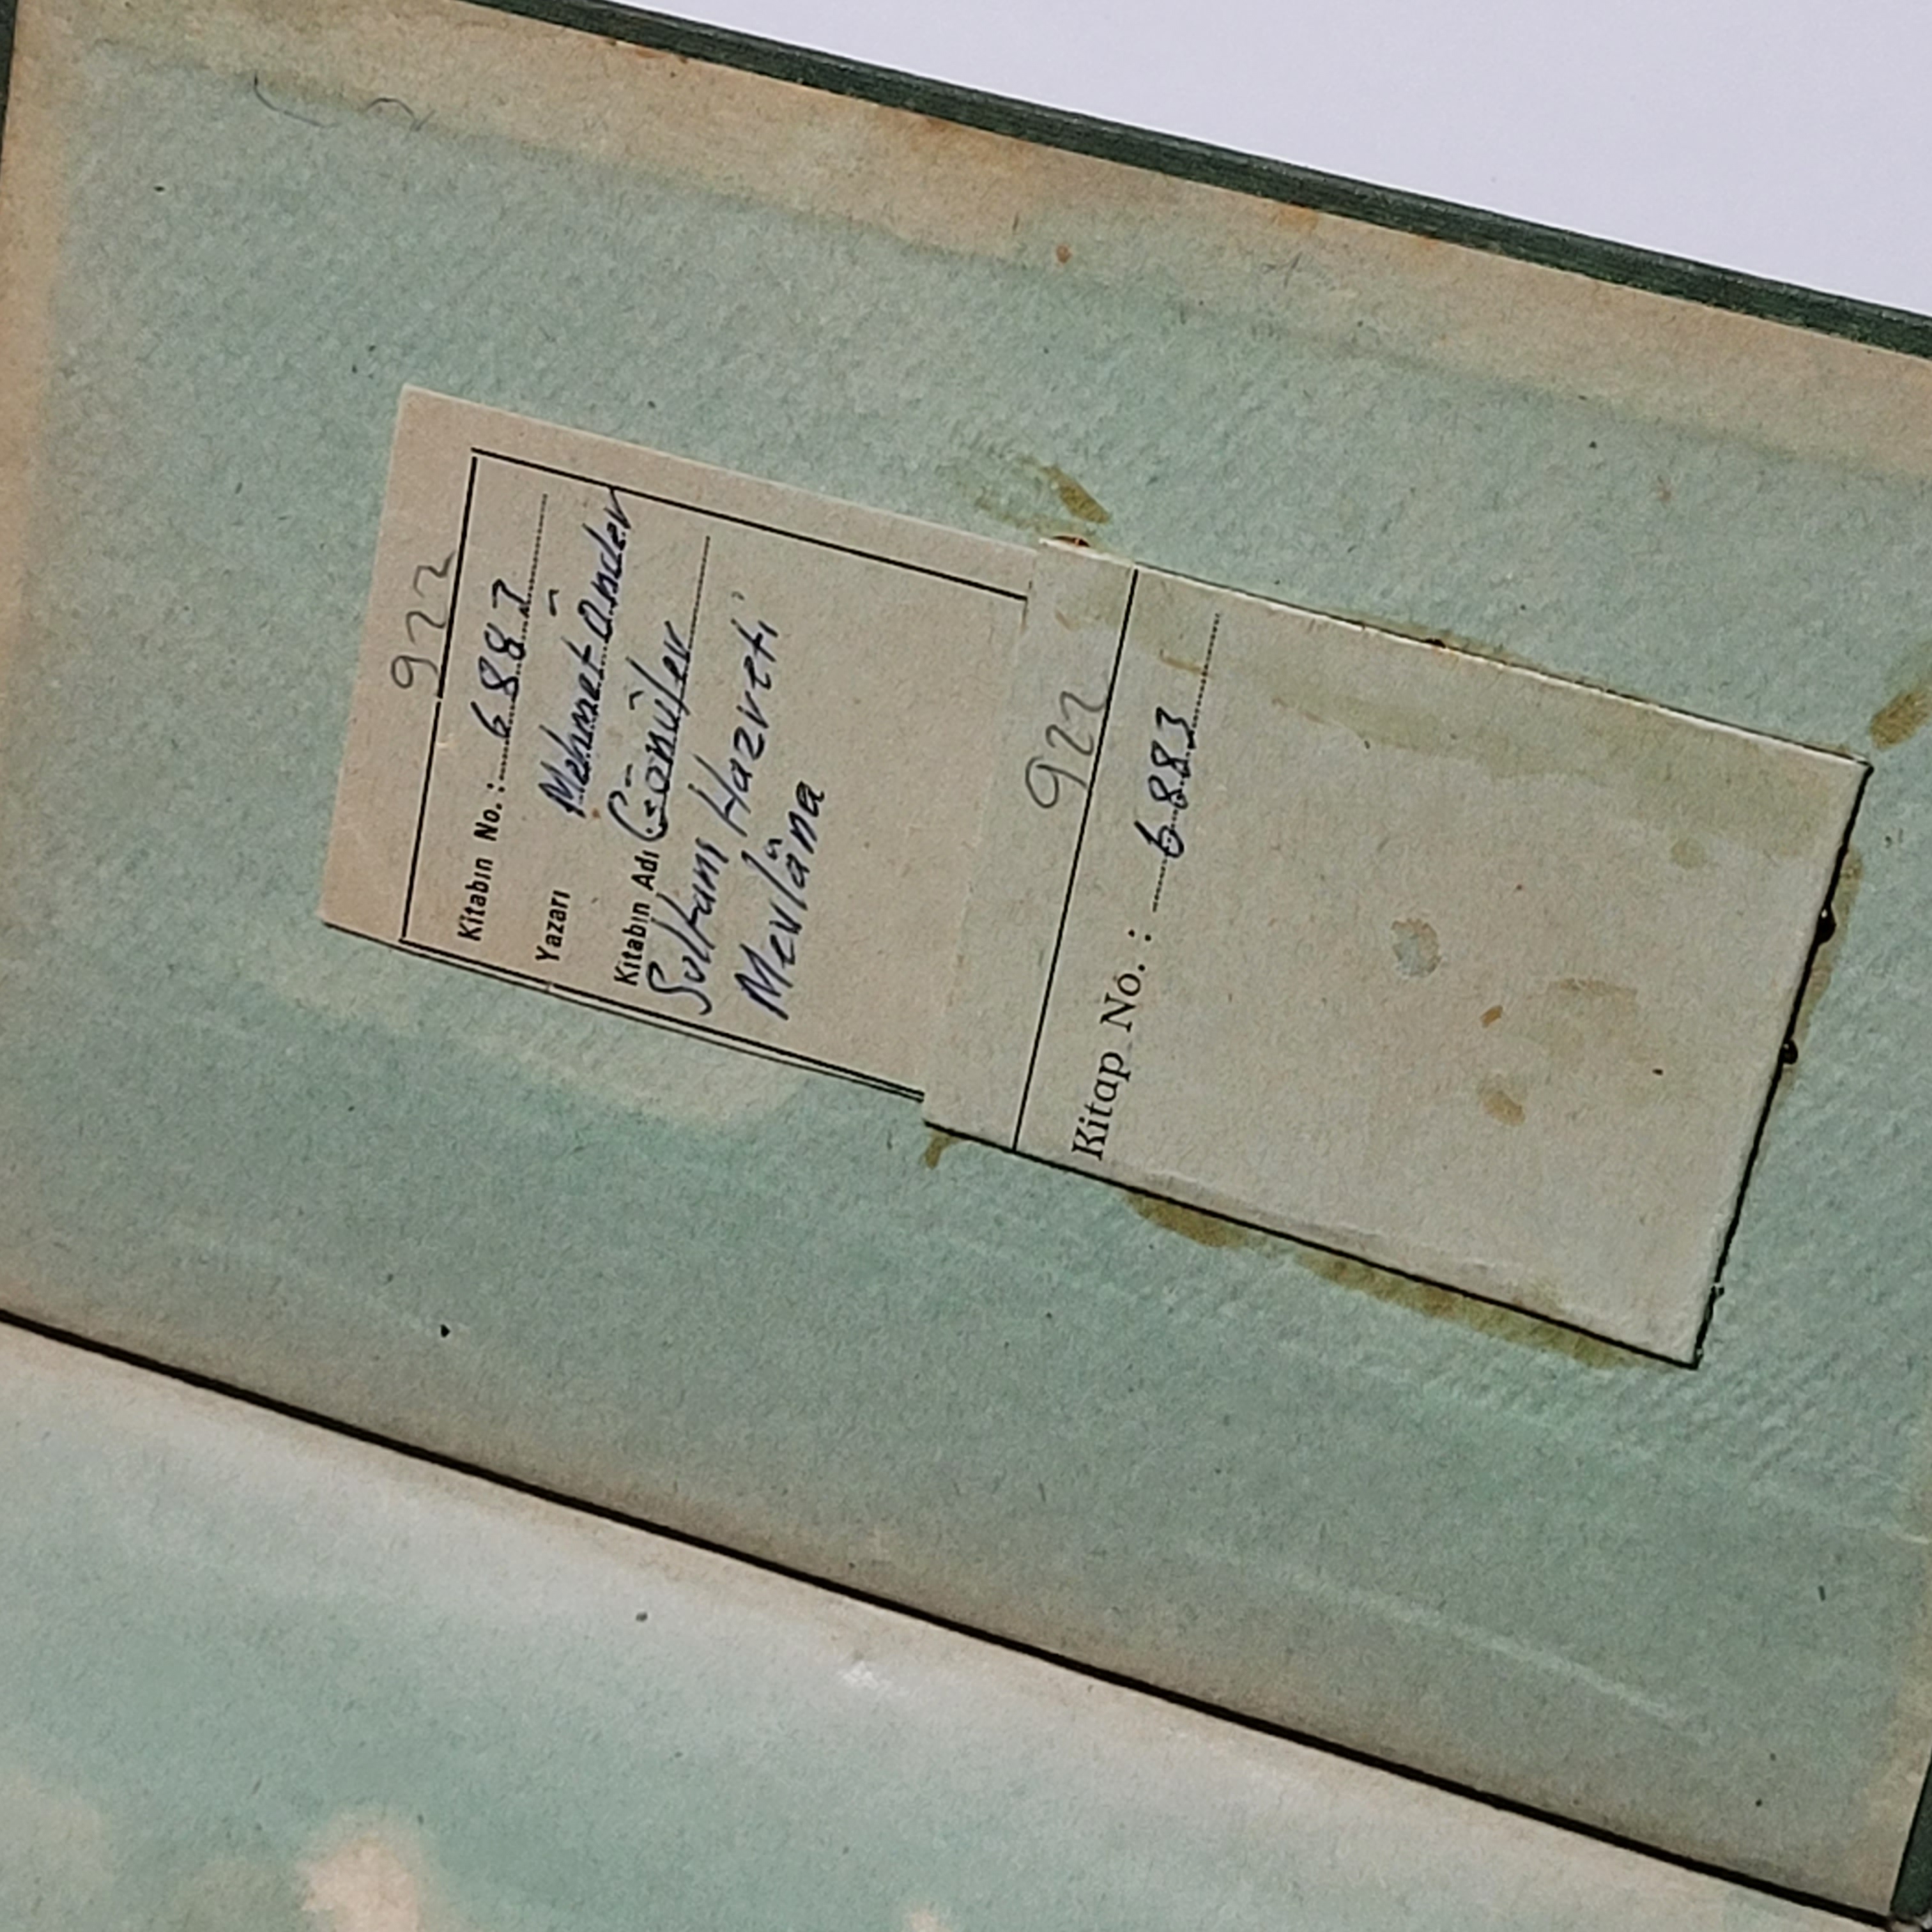 922
Kitabın No. : 6883
Yazarı Mehmet Önder
Kitabın Adı Gönüller
Sultanı Hazreti
Mevlâna
922
Kitap No. : 6883